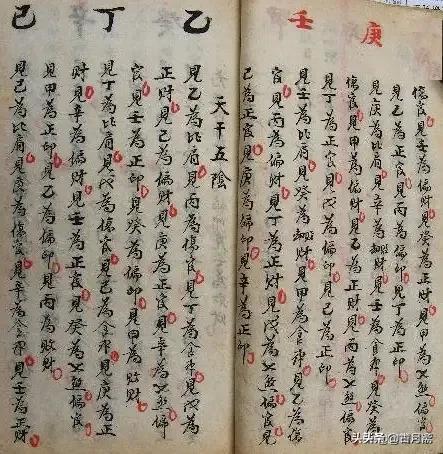 傷官見壬為偏財見癸為正財見甲為七煞偏官
見乙為正官見丙為偏印見丁為正印
庚
見庚為比肩見辛為敗財見壬為食神見癸為
傷官見甲為偏財見乙為正財見丙為七煞偏官
見丁為正官見戊為偏印見己為正印
壬
見壬為比肩見癸為敗財見甲為食神見乙為傷
官見丙為偏財見丁為正財見戊為七煞偏官見
己為正官見庚為偏印見辛為正印
天干五陰
乙
見乙為比肩見丙為傷官見丁為食神見戊為
正財見己為偏財見庚為正官見辛為七煞偏
官見壬為正印見癸為偏印見甲為敗財
丁
見丁為比肩見戊為傷官見己為食神見庚為正
財見辛為偏財見壬為正官見癸為七煞偏官
見甲為正印見乙為偏印見丙為敗財
己
見己為比肩見庚為傷官見辛為食神見壬為正財